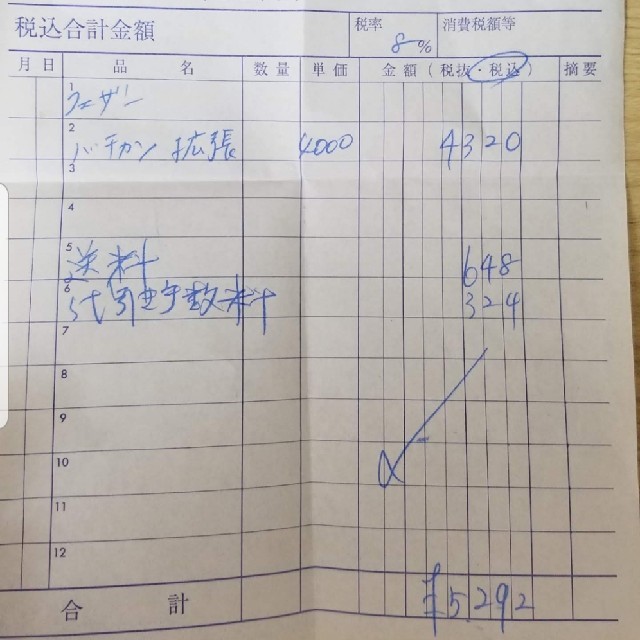 税込合計金額 税率 8% 消費税額等
月 日 品 名 数量 単価 金額(税抜・税込) 摘要
1 フェザー
2 バチカン 拡張 4000 4320
3
4
5 送料 648
6 代引き手数料 324
7
8
9
10
11
12
合 計 ¥5292